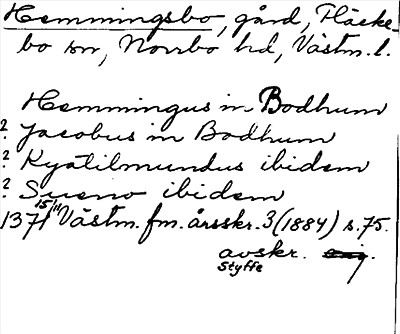 Hemmingsbo, gård, Fläcke-
bo sn, Norrbo hd, Västm. l.
Hemmingus in Bodhum
? Jacobus in Bodhum
? Kyatilmundus ibidem
? Sueno ibidem
1371 15/11 Västm. fm. årsskr. 3 (1884) s. 75.
avskr.
Styffe